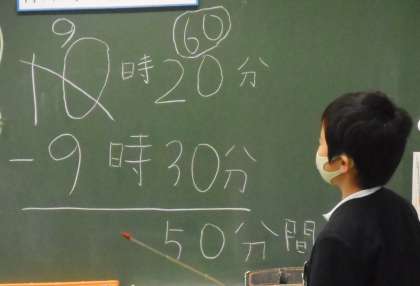 9 60
10時20分
-9時30分
50分間